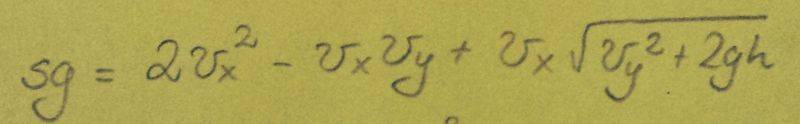 sg = 2v_x² - v_x v_y + v_x √(v_y² + 2gh)